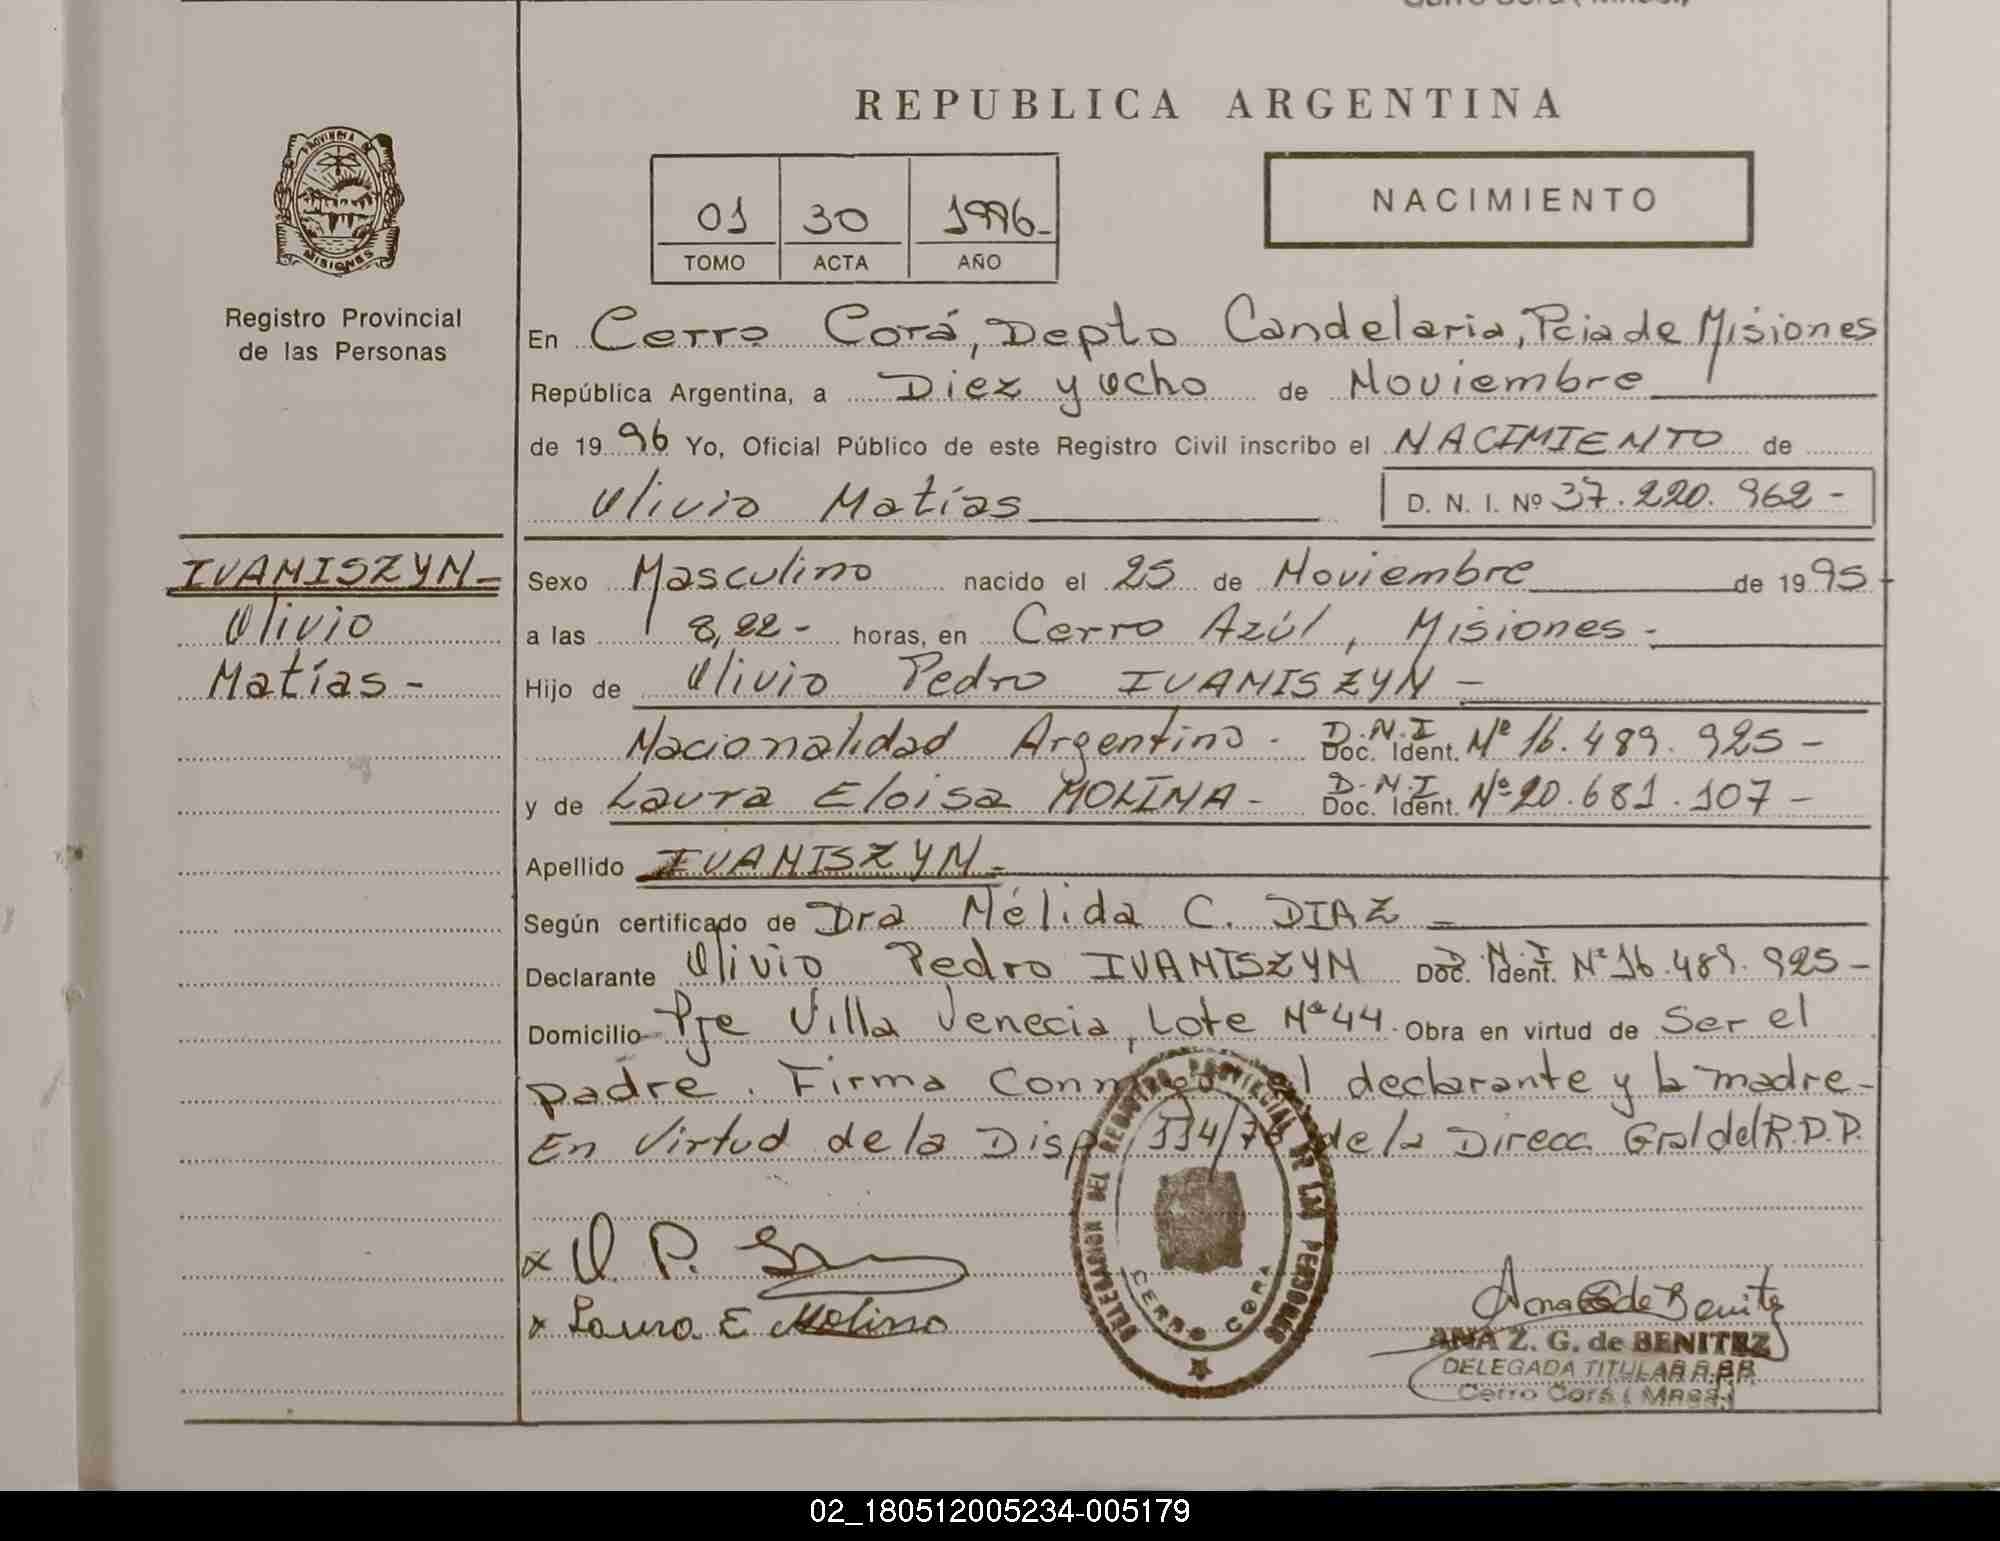 REPUBLICA ARGENTINA
PROVINCIA DE
MISIONES
Registro Provincial
de las Personas
01 30 1996-
TOMO ACTA AÑO
NACIMIENTO
En Cerro Corá, Depto Candelaria, Pcia de Misiones
República Argentina, a Diez y ocho de Noviembre
de 1996 Yo, Oficial Público de este Registro Civil inscribo el NACIMIENTO de
Olivio Matías D. N. I. Nº 37.220.962-
IVANISZYN-
Olivio
Matías-
Sexo Masculino nacido el 25 de Noviembre de 1995
a las 8,22- horas, en Cerro Azúl, Misiones-
Hijo de Olivio Pedro IVANISZYN-
Nacionalidad Argentino- D.N.I Doc. Ident. Nº 16.489.925-
y de Laura Eloisa MOLINA- D.N.I Doc. Ident. Nº 20.681.107-
Apellido IVANISZYN-
Según certificado de Dra Nélida C. DIAZ-
Declarante Olivio Pedro IVANISZYN D.N.I Doc. Ident. Nº 16.489.925-
Domicilio Pje Villa Venecia, Lote Nº 44. Obra en virtud de Ser el
padre. Firma Conmigo el declarante y la madre-
En Virtud de la Disp. 114/76 de la Direcc. Gral del R.P.P.
x O. P.
x Laura E Molina
DELEGACION DEL REGISTRO PROVINCIAL DE LAS PERSONAS
CERRO CORA
Ana G de Benitez
ANA Z. G. de BENITEZ
DELEGADA TITULAR R.P.P.
Cerro Corá (Mnes.)
02_180512005234-005179